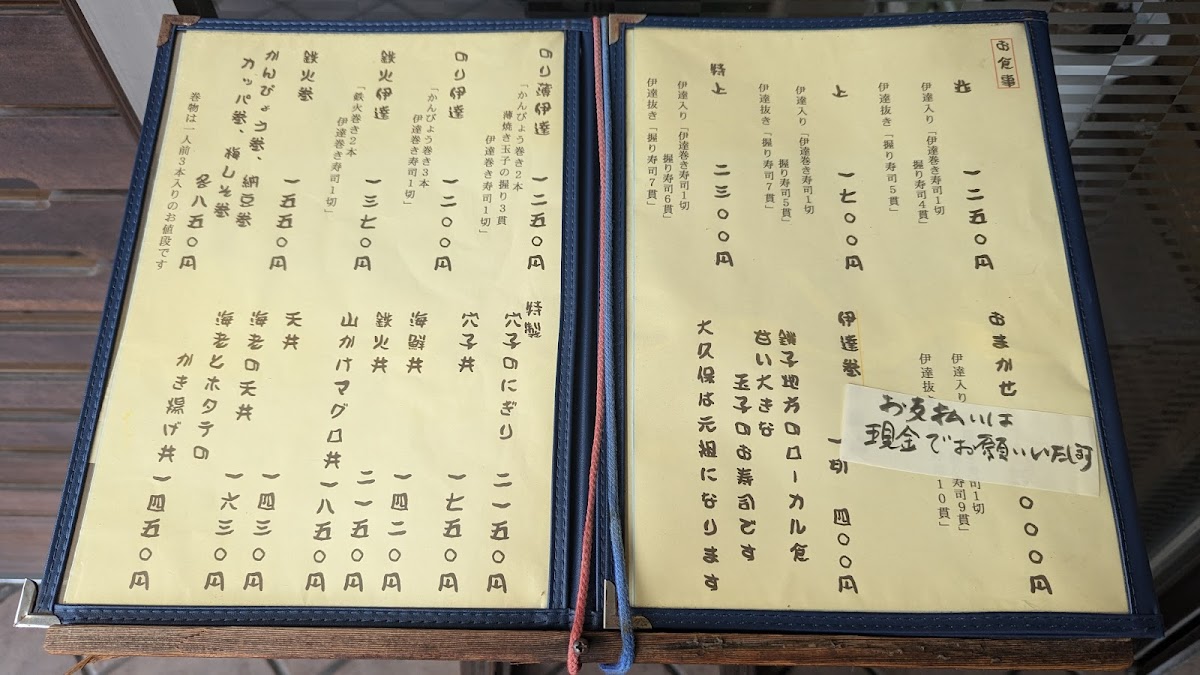 お食事
並 一二五〇円
伊達入り「伊達巻き寿司1切
握り寿司4貫」
伊達抜き「握り寿司5貫」
上 一七〇〇円
伊達入り「伊達巻き寿司1切
握り寿司5貫」
伊達抜き「握り寿司7貫」
特上 二三〇〇円
伊達入り「伊達巻き寿司1切
握り寿司6貫」
伊達抜き「握り寿司7貫」
おまかせ 〇〇〇円
伊達入り 司1切
寿司9貫」
伊達抜 10貫」
お支払いは
現金でお願いいたします
伊達巻 一切 四〇〇円
銚子地方のローカル食
甘い大きな
玉子のお寿司です
大久保は元祖になります
のり薄伊達 一二五〇円
「かんぴょう巻き2本
薄焼き玉子の握り3貫
伊達巻き寿司1切」
のり伊達 一二〇〇円
「かんぴょう巻き3本
伊達巻き寿司1切」
鉄火伊達 一三七〇円
「鉄火巻き2本
伊達巻き寿司1切」
鉄火巻 一五五〇円
かんぴょう巻、納豆巻
カッパ巻、梅しそ巻
各八五〇円
巻物は一人前3本入りのお値段です
特製
穴子のにぎり 二一五〇円
穴子丼 一七五〇円
海鮮丼 一四二〇円
鉄火丼 二一五〇円
山かけマグロ丼 一八五〇円
天丼 一四三〇円
海老の天丼 一六三〇円
海老とホタテの
かき揚げ丼 一四五〇円